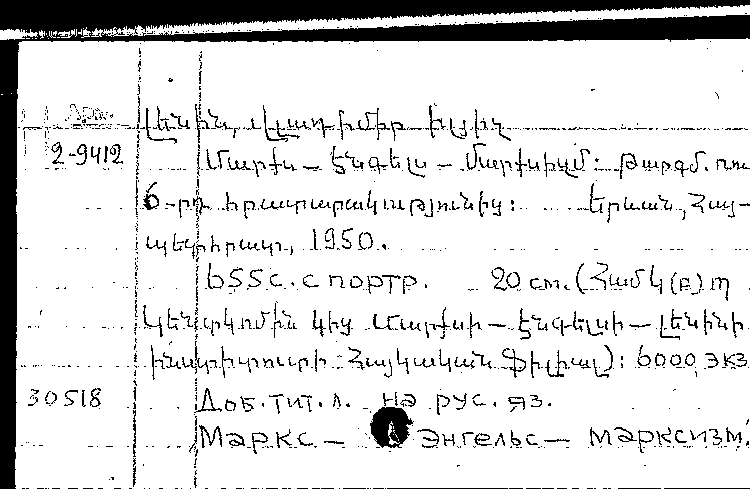 Լենին, Վլադիմիր Իլյիչ
2-9412 Մարքս – Էնգելս – Մարքսիզմ: Թարգմ. ռու
6-րդ հրատարակությունից: Երևան, Հայ-
պետհրատ, 1950.
655 с. с портр. 20 см. (Համկ(բ)պ
Կենտկոմին կից Մարքսի – Էնգելսի – Լենինի
ինստիտուտի Հայկական Ֆիլիալ): 6000 экз
30518 Доб. тит. л. на рус. яз.
Маркс – Энгельс – марксизм.